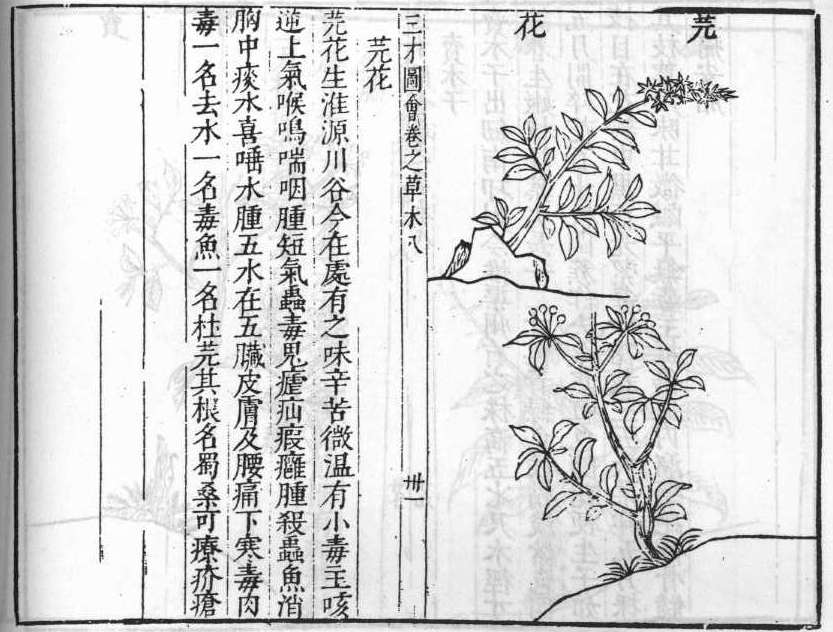 芫花
三才圖會卷之草木八 卅一
芫花
芫花生淮源川谷今在處有之味辛苦微温有小毒主咳
逆上氣喉鳴喘咽腫短氣蟲毒鬼瘧疝瘕癰腫殺蟲魚消
胸中痰水喜唾水腫五水在五臟皮膚及腰痛下寒毒肉
毒一名去水一名毒魚一名杜芫其根名蜀桑可療疥瘡